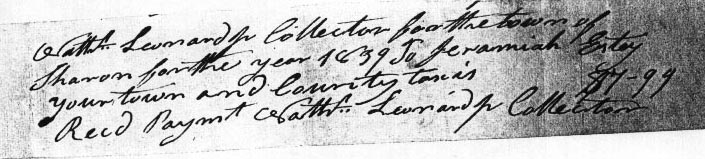 Nathl. Leonard Jr Collector for the town of
Sharon for the year 1839 To Jeramiah Estey
your town and County taxis $7-99
Recd Paymt Nathl. Leonard Jr Collector